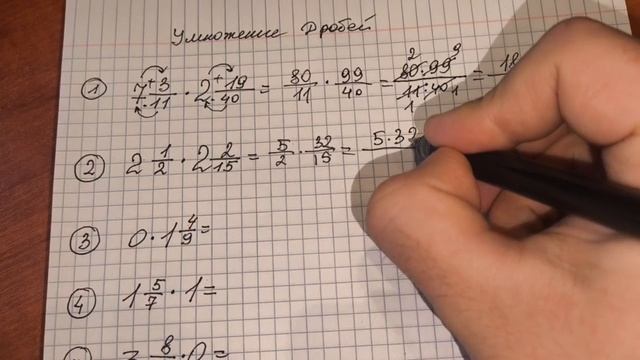 Умножение Дробей
① 7 3/11 · 2 19/40 = 80/11 · 99/40 = 80·99/11·40 = 18
② 2 1/2 · 2 2/15 = 5/2 · 32/15 = 5·32
③ 0·1 4/9=
④ 1 5/7 · 1=
8 · 0=